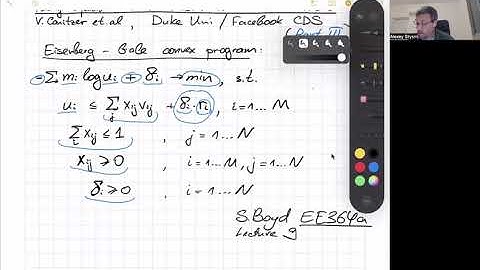 V. Conitzer et.al, Duke Uni / Facebook CDS
(Part III)
Eisenberg - Gale convex program:
- ∑ mᵢ log uᵢ + δᵢ → min, s.t.
uᵢ ≤ ∑ⱼ xᵢⱼ vᵢⱼ + δᵢ · rᵢ, i = 1... M
∑ᵢ xᵢⱼ ≤ 1, j = 1... N
xᵢⱼ ≥ 0, i = 1... M, j = 1... N
δᵢ ≥ 0, i = 1... N
S. Boyd EE364a
Lecture 9
Alexey Stysin